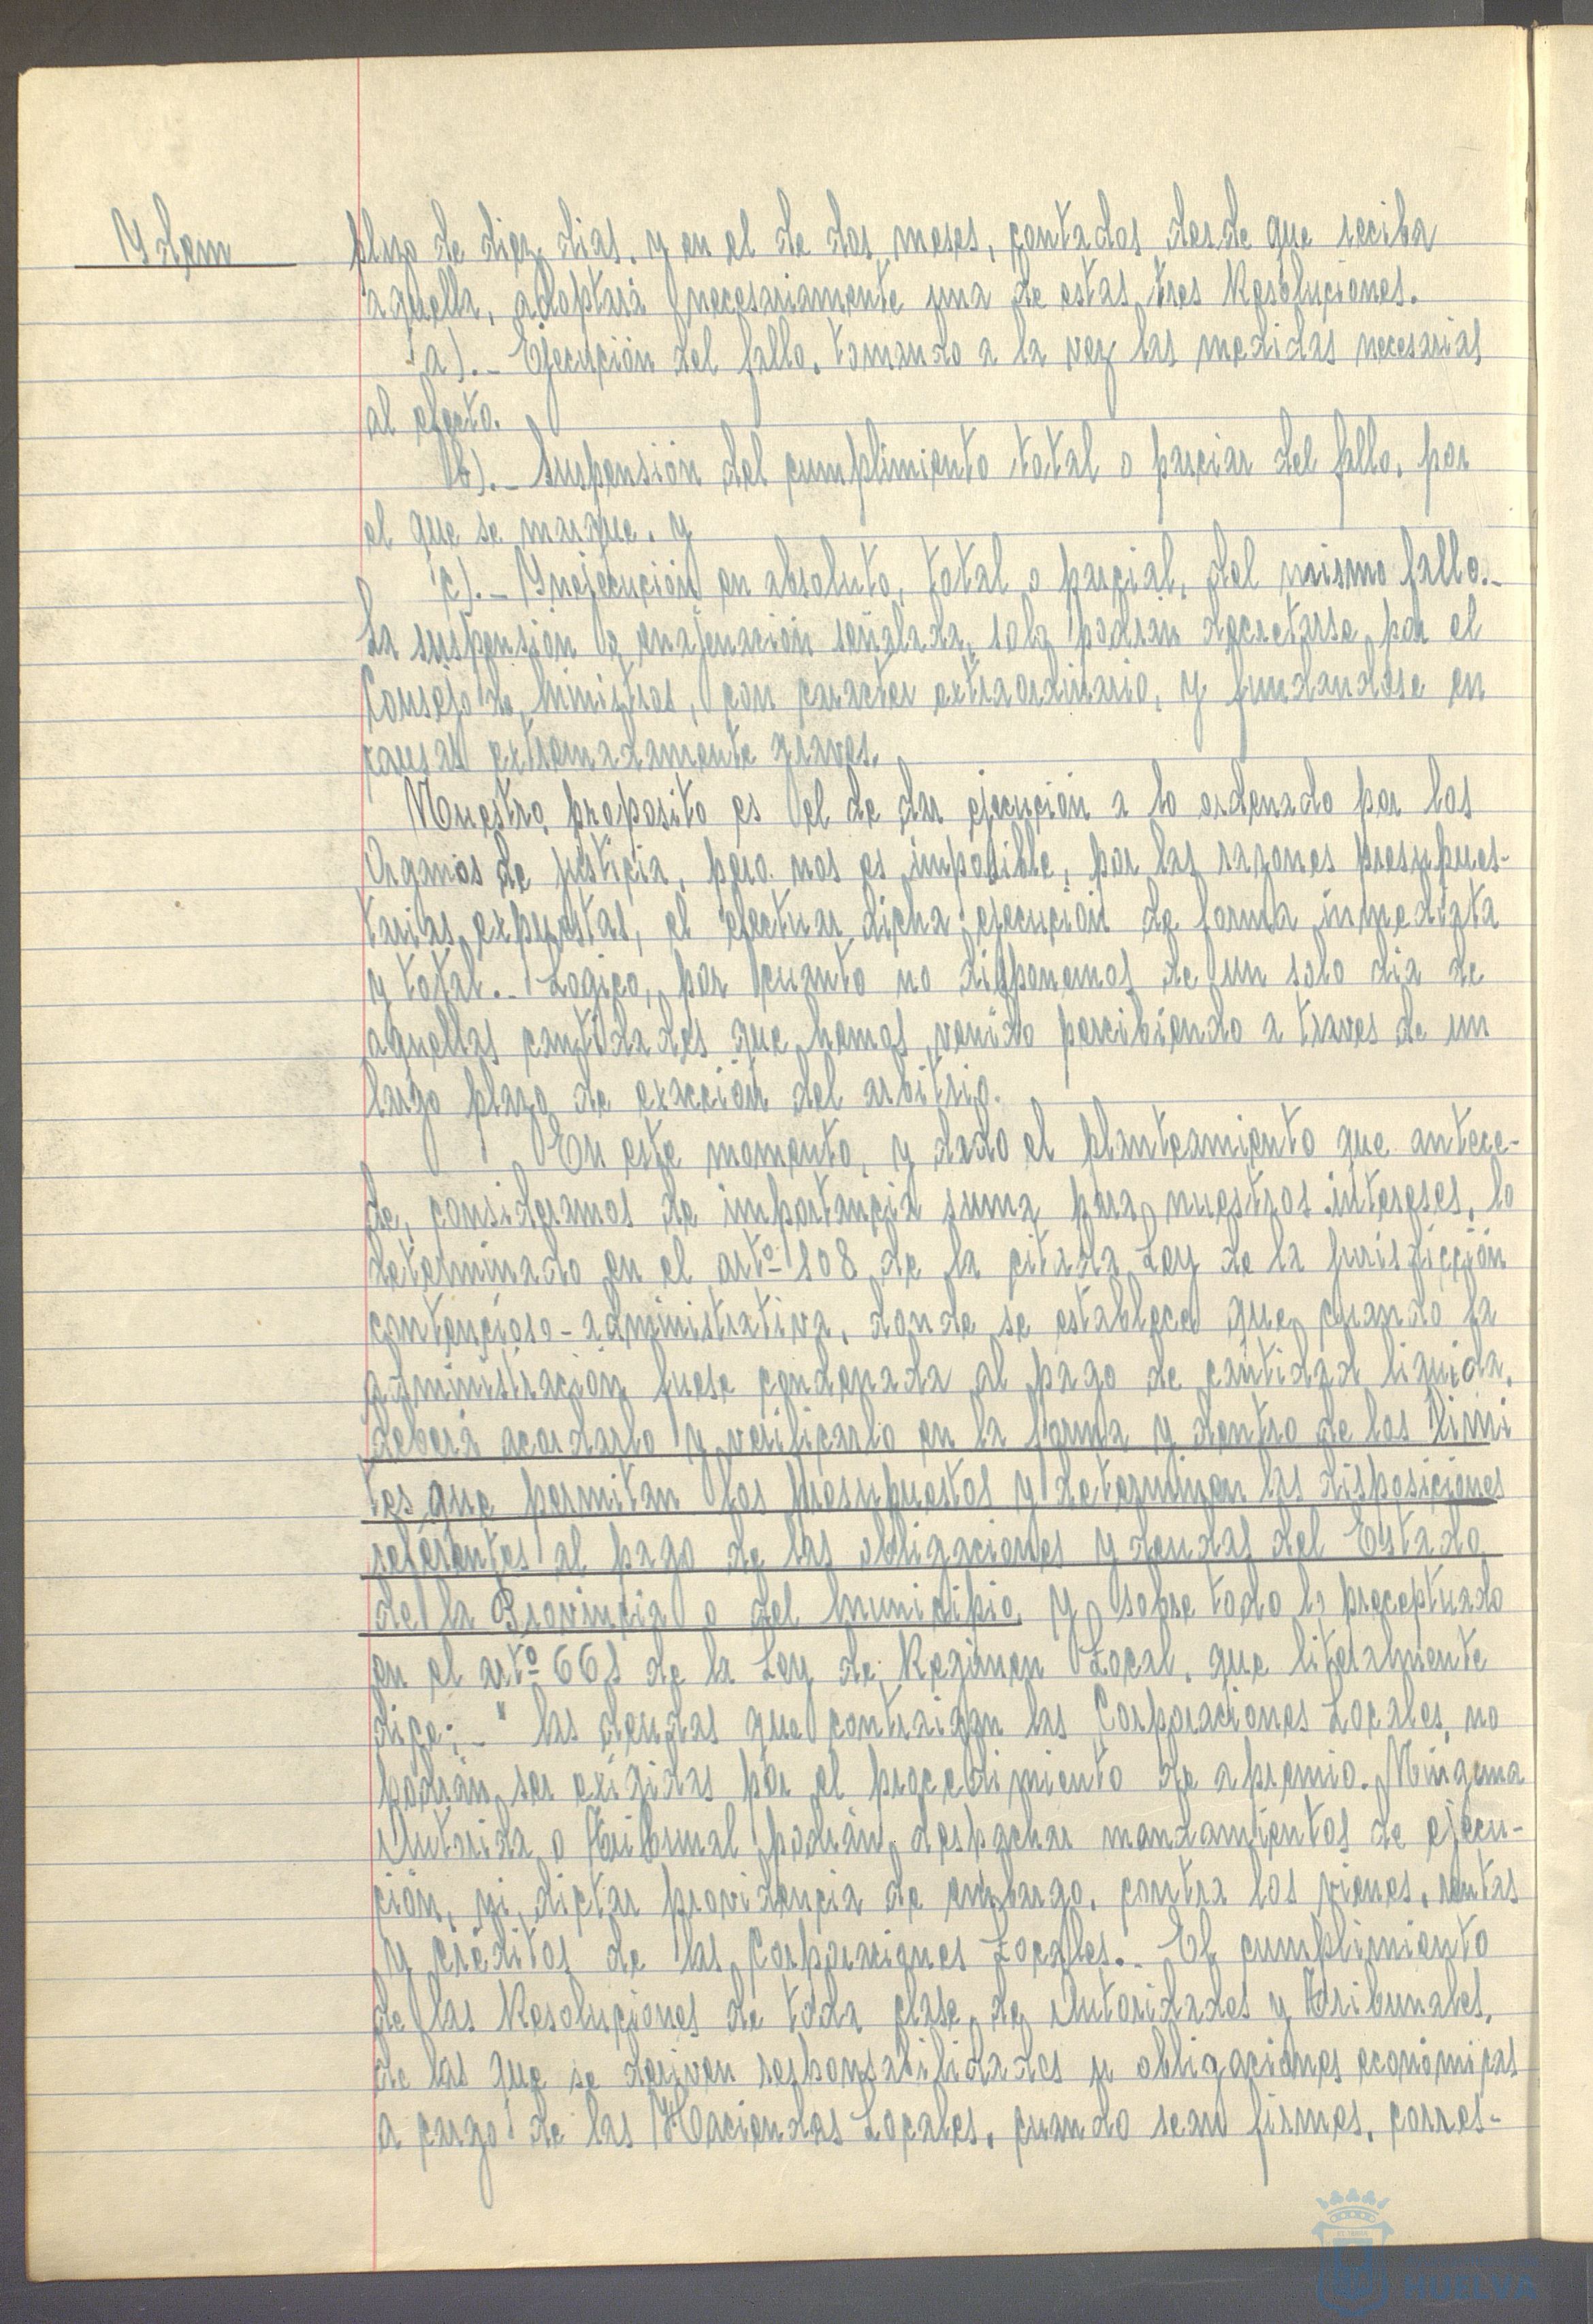 Ydem
plazo de diez dias, y en el de dos meses, contados desde que reciba
aquella, adoptará necesariamente una de estas tres Resoluciones.
a).- Ejecución del fallo, tomando a la vez las medidas necesarias
al efecto.
b).- Suspensión del cumplimiento total o parciar del fallo, por
el que se marque, y
c).- Ynejecución en absoluto, total o parcial, del mismo fallo.-
La suspensión o enajenación señalada, solo podrán decretarse por el
Consejo de Ministros, con caracter extraordinario, y fundandose en
causas extremadamente graves.
Nuestro proposito es el de dar ejecución a lo ordenado por los
Organos de justicia, pero nos es imposible, por las razones presupues-
tarias expuestas, el efectuar dicha ejecución de forma inmediata
y total.- Logico, por cuanto no disponemos de un solo dia de
aquellas cantidades que hemos venido percibiendo a traves de un
largo plazo de exacción del arbitrio.
En este momento, y dado el planteamiento que antece-
de, consideramos de importancia suma para nuestros intereses, lo
determinado en el artº 108 de la citada Ley de la Jurisdicción
contencioso-administrativa, donde se establece que cuando la
administración fuese condenada al pago de cantidad liquida,
deberá acordarlo y verificarlo en la forma y dentro de los limi
tes que permitan los presupuestos y determinen las disposiciones
referentes al pago de las obligaciones y deudas del Estado
de la Provincia o del Municipio, y sobre todo lo preceptuado
en el artº 661 de la Ley de Regimen Local, que literalmente
dice:- " las deudas que contraigan las Corporaciones Locales, no
podran ser exigidas por el procedimiento de apremio. Ninguna
Autorida o Tribunal podrán despachar mandamientos de ejecu-
ción, ni dictar providencia de embargo, contra los vienes, rentas
y créditos de las Corporaciones Locales.- El cumplimiento
de las Resoluciones de toda clase de Autoridades y Tribunales,
de las que se deriven responsabilidades u obligaciones economicas
a cargo de las Haciendas Locales, cuando sean firmes, corres-
HUELVA